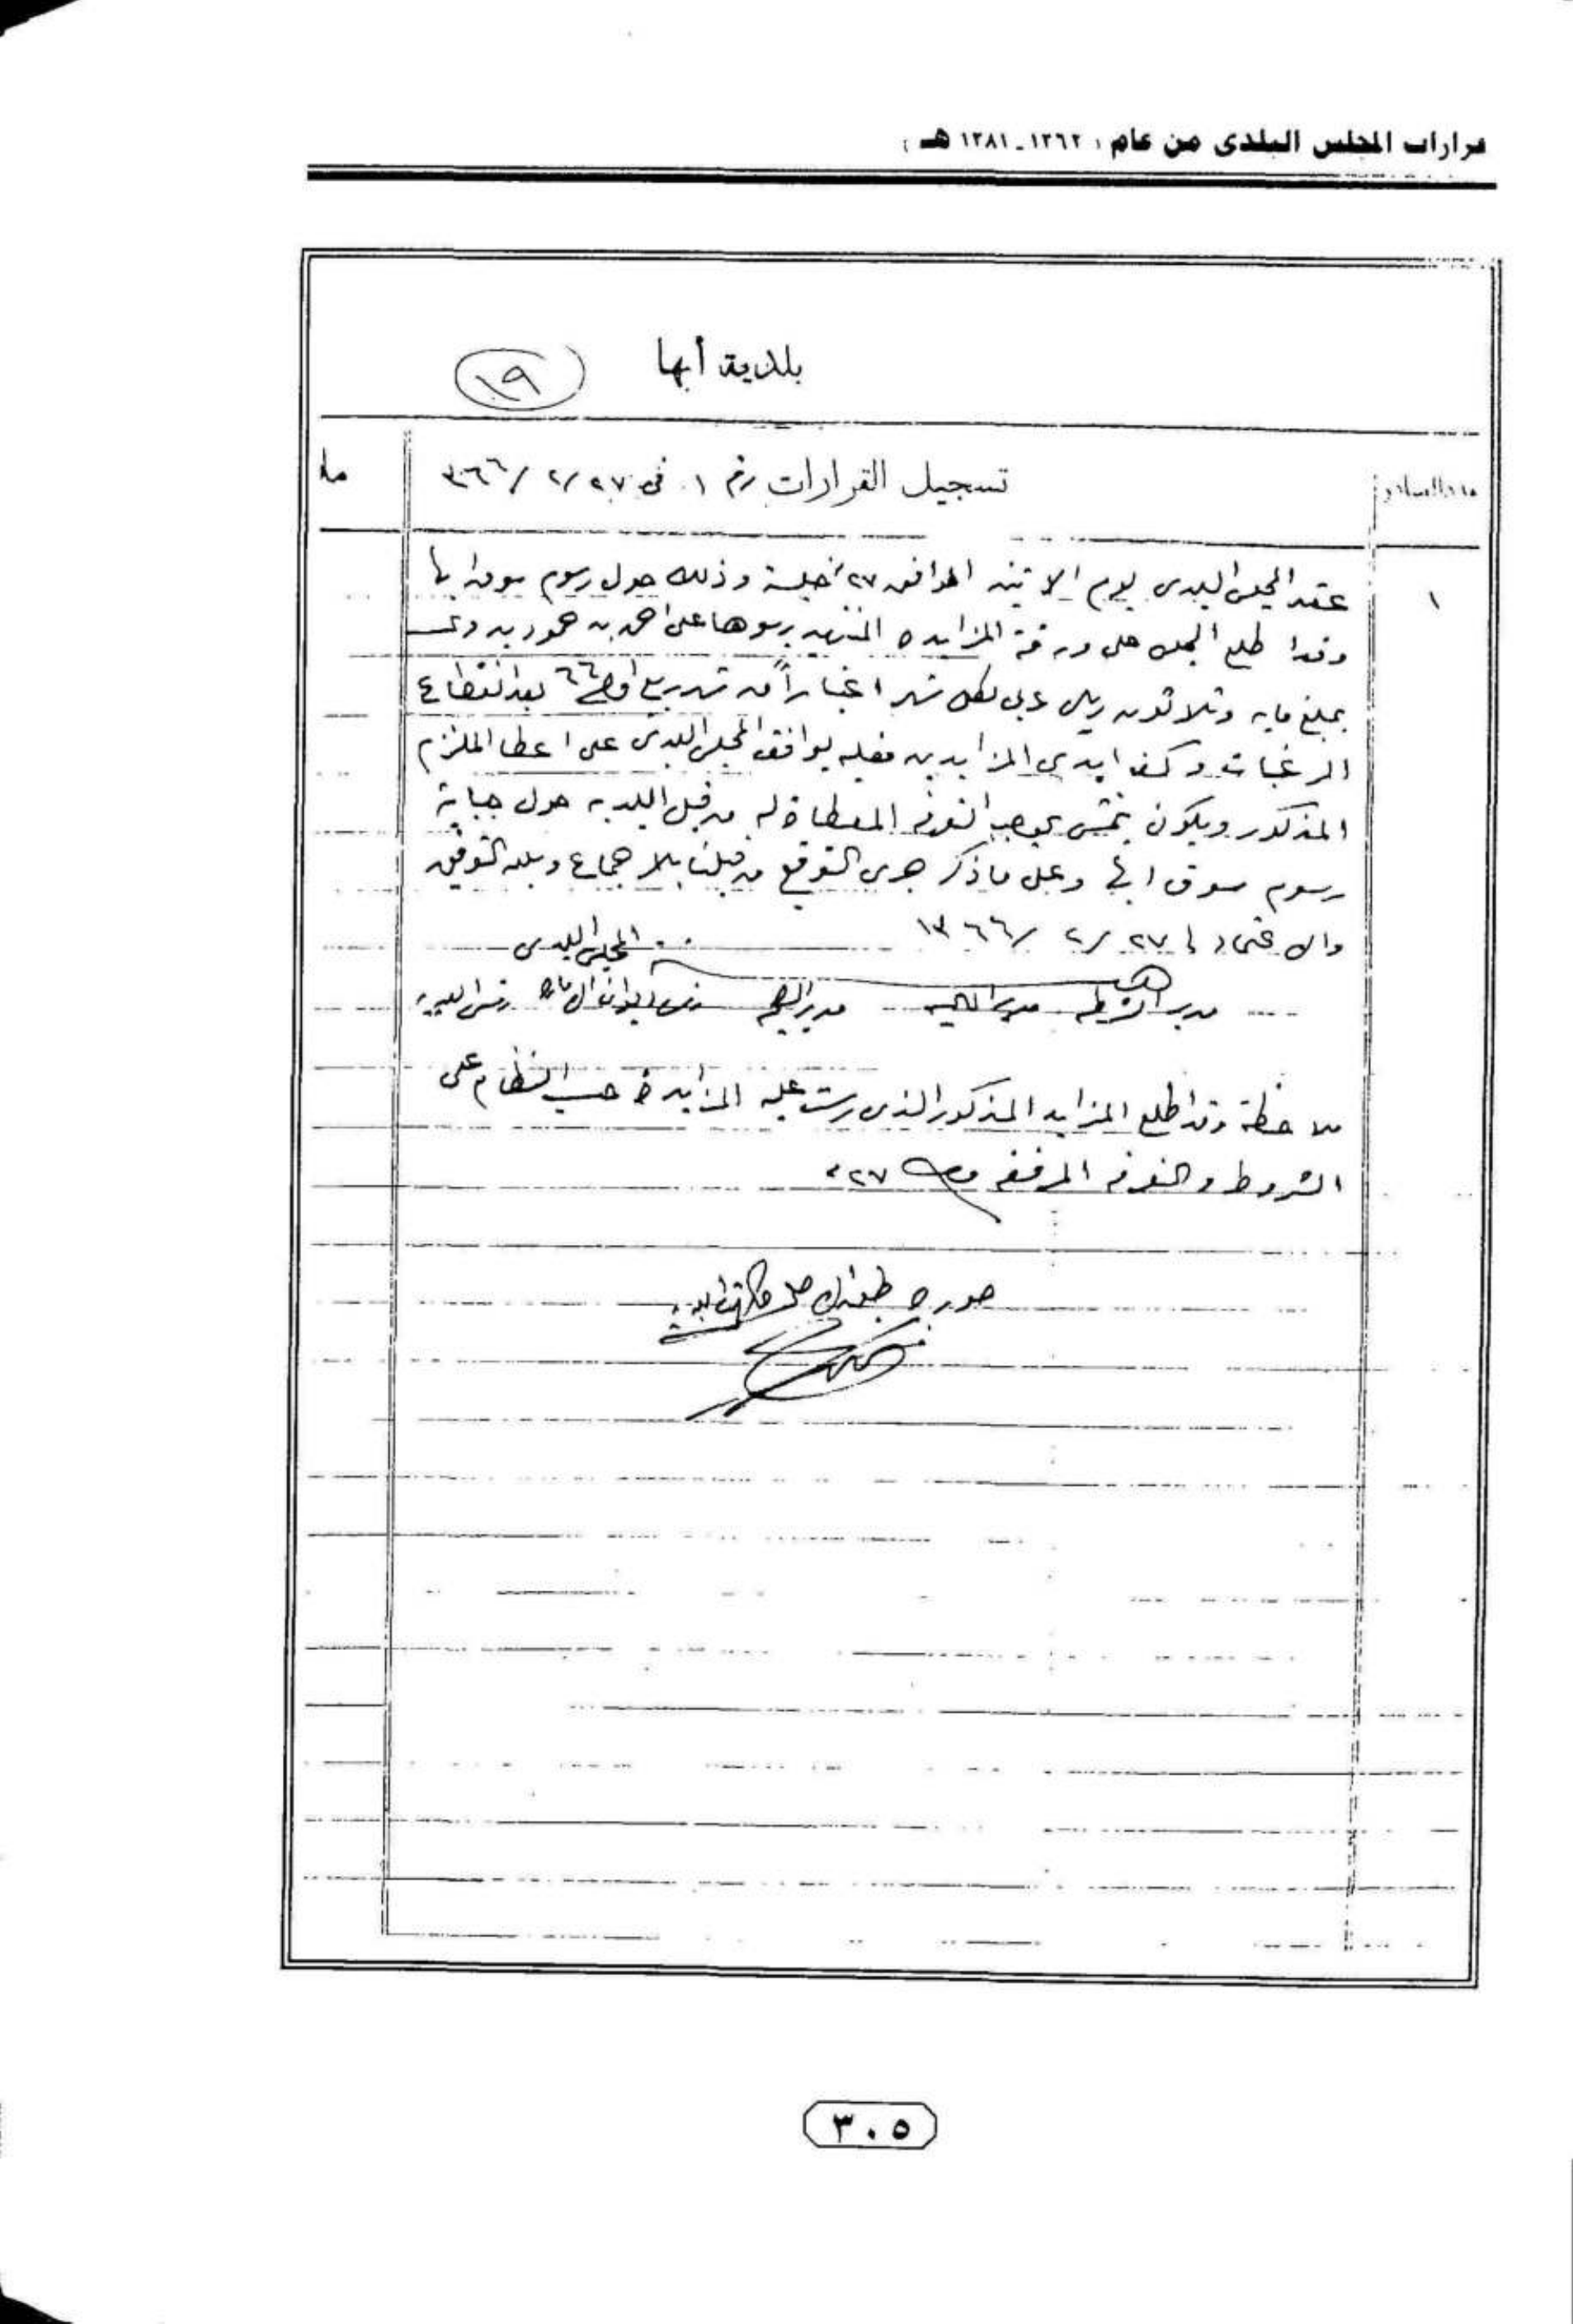 قرارات المجلس البلدى من عام ( ١٣٦٢ - ١٣٨١ هـ )
بلدية أبها
١٩
تسجيل القرارات رقم ١ فى ٢٧/ ٢/ ٣٦٦
١
عقد المجلس البلدى يوم الاثنين الموافق ٢٧ جلسة وذلك حول رسوم سوق ابها
وقد اطلع المجلس على ورقة المزايده المنتهيه برسوها على احمد بن حمود بن
بمبلغ مايه وثلاثون ريال عربى لكل شهر اعتباراً من شهر ربيع اول ٦٦ بعد انقطاع
الرغبات وكف ايدى المزايدين فعليه يوافق المجلس البلدى على اعطا الملتزم
المذكور ويكون يتمشى بموجب التعرفه المعطاة له من قبل البلديه حول جباية
رسوم سوق ابها وعلى ماذكر جرى التوقيع من قبلنا بالاجماع وبالله التوفيق
والاعتماد ٢٧/ ٢/ ١٣٦٦
المجلس البلدى
مدير الشرطه مدير الماليه مدير الصحه رئيس ديوان الاماره رئيس البلديه
ملاحظة وقد اطلع المزايد المذكور الذى رست عليه المزايدة حسب النظام على
الشروط والتعرفه المرفقه ٢٧
صورة طبق الاصل كاتب البلدية
٣٠٥